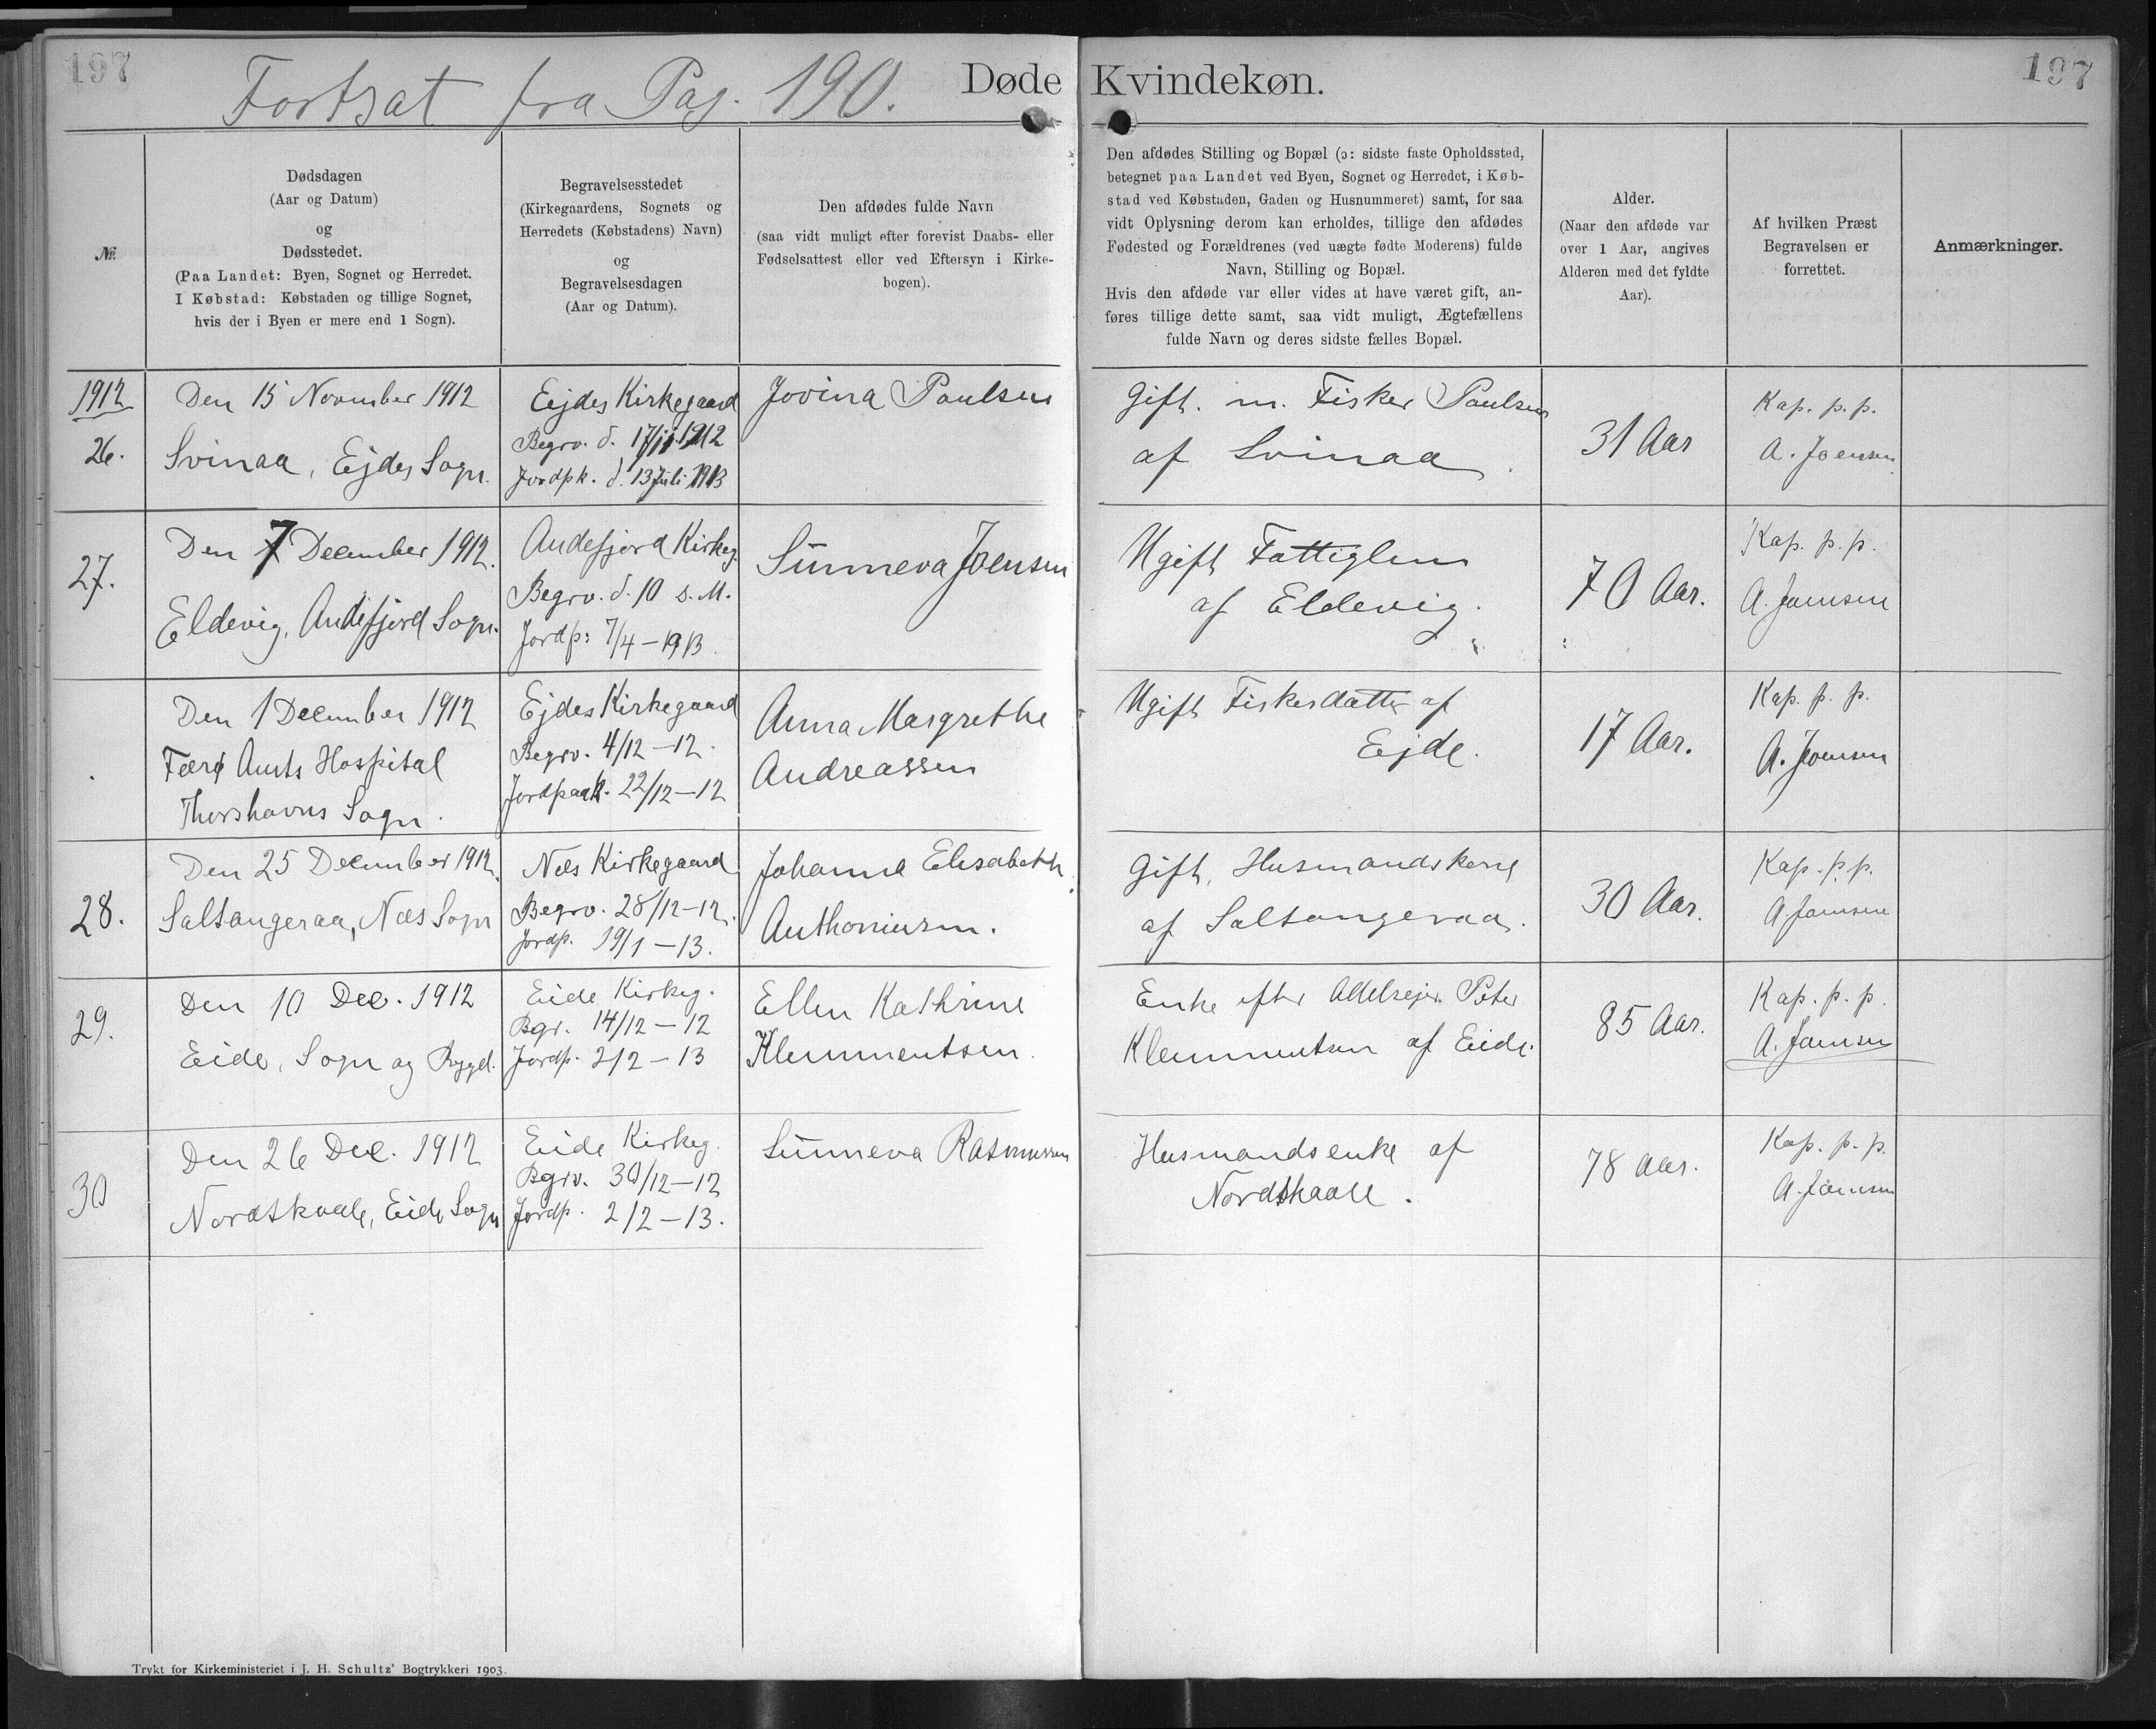 197
Fortsat fra Pag. 190.
Døde Kvindekøn.
197
№.
Dødsdagen
(Aar og Datum)
og
Dødsstedet.
(Paa Landet: Byen, Sognet og Herredet.
I Købstad: Købstaden og tillige Sognet,
hvis der i Byen er mere end 1 Sogn).
Begravelsesstedet
(Kirkegaardens, Sognets og
Herredets (Købstadens) Navn)
og
Begravelsesdagen
(Aar og Datum).
Den afdødes fulde Navn
(saa vidt muligt efter forevist Daabs- eller
Fødselsattest eller ved Eftersyn i Kirke-
bogen).
Den afdødes Stilling og Bopæl (ɔ: sidste faste Opholdssted,
betegnet paa Landet ved Byen, Sognet og Herredet, i Køb-
stad ved Købstaden, Gaden og Husnummeret) samt, for saa
vidt Oplysning derom kan erholdes, tillige den afdødes
Fødested og Forældrenes (ved uægte fødte Moderens) fulde
Navn, Stilling og Bopæl.
Hvis den afdøde var eller vides at have været gift, an-
føres tillige dette samt, saa vidt muligt, Ægtefællens
fulde Navn og deres sidste fælles Bopæl.
Alder.
(Naar den afdøde var
over 1 Aar, angives
Alderen med det fyldte
Aar).
Af hvilken Præst
Begravelsen er
forrettet.
Anmærkninger.
1912
26.
Den 15 November 1912
Svinaa, Ejdes Sogn.
Ejdes Kirkegaard
Begrv. d. 17/11 1912
Jordpk. d. 13 Juli 1913
Jovina Poulsen
Gift. m. Fisker Poulsen
af Svinaa.
31 Aar
Kap. p. p.
A. Joensen
27.
Den 7 December 1912.
Eldevig, Andefjord Sogn.
Andefjord Kirkeg.
Begrv. d. 10 s. M.
Jordp: 7/4 – 1913.
Sunneva Joensen
Ugift Fattiglem
af Eldevig.
70 Aar.
Kap. p. p.
A. Joensen
Den 1 December 1912
Færø Amts Hospital
Thorshavns Sogn.
Ejdes Kirkegaard
Begrv. 4/12 – 12.
Jordpaak. 22/12 – 12
Anna Margrethe
Andreassen
Ugift Fiskerdatter af
Ejde.
17 Aar.
Kap. p. p.
A. Joensen
28.
Den 25 December 1912.
Saltangeraa, Næs Sogn
Næs Kirkegaard
Begrv. 28/12 – 12.
Jordp. 19/1 – 13.
Johanna Elisabeth
Anthoniusen.
Gift, Husmandskone
af Saltangeraa.
30 Aar.
Kap. p. p.
A. Joensen
29.
Den 10 Dec. 1912
Eide, Sogn og Bygd.
Eide Kirkeg.
Bgr. 14/12 – 12
Jordp. 2/2 – 13
Ellen Kathrine
Klemmentsen.
Enke efter Odelsejer Peter
Klemmentsen af Eide.
85 Aar.
Kap. p. p.
A. Joensen
30
Den 26 Dec. 1912
Nordskaale, Eide Sogn
Eide Kirkeg.
Bgrv. 30/12 – 12
Jordp. 2/2 – 13.
Sunneva Rasmussen
Husmandsenke af
Nordskaale.
78 Aar.
Kap. p. p.
A. Joensen
Trykt for Kirkeministeriet i J. H. Schultz' Bogtrykkeri 1903.